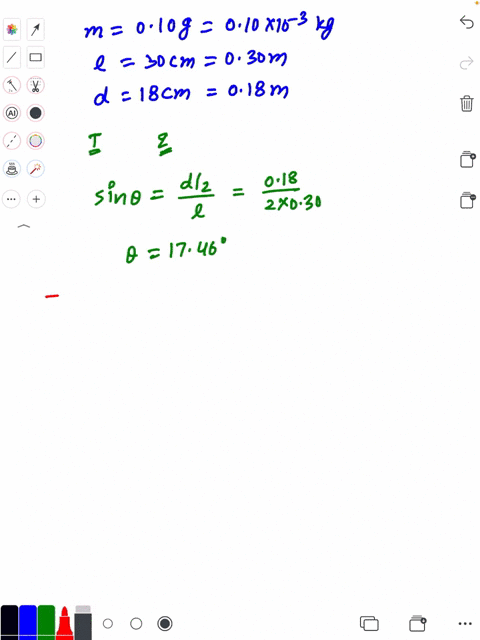 m = 0.10g = 0.10×10⁻³ kg
l = 30cm = 0.30m
d = 18cm = 0.18m
T q
sinθ = d/2 / l = 0.18 / 2×0.30
θ = 17.46°